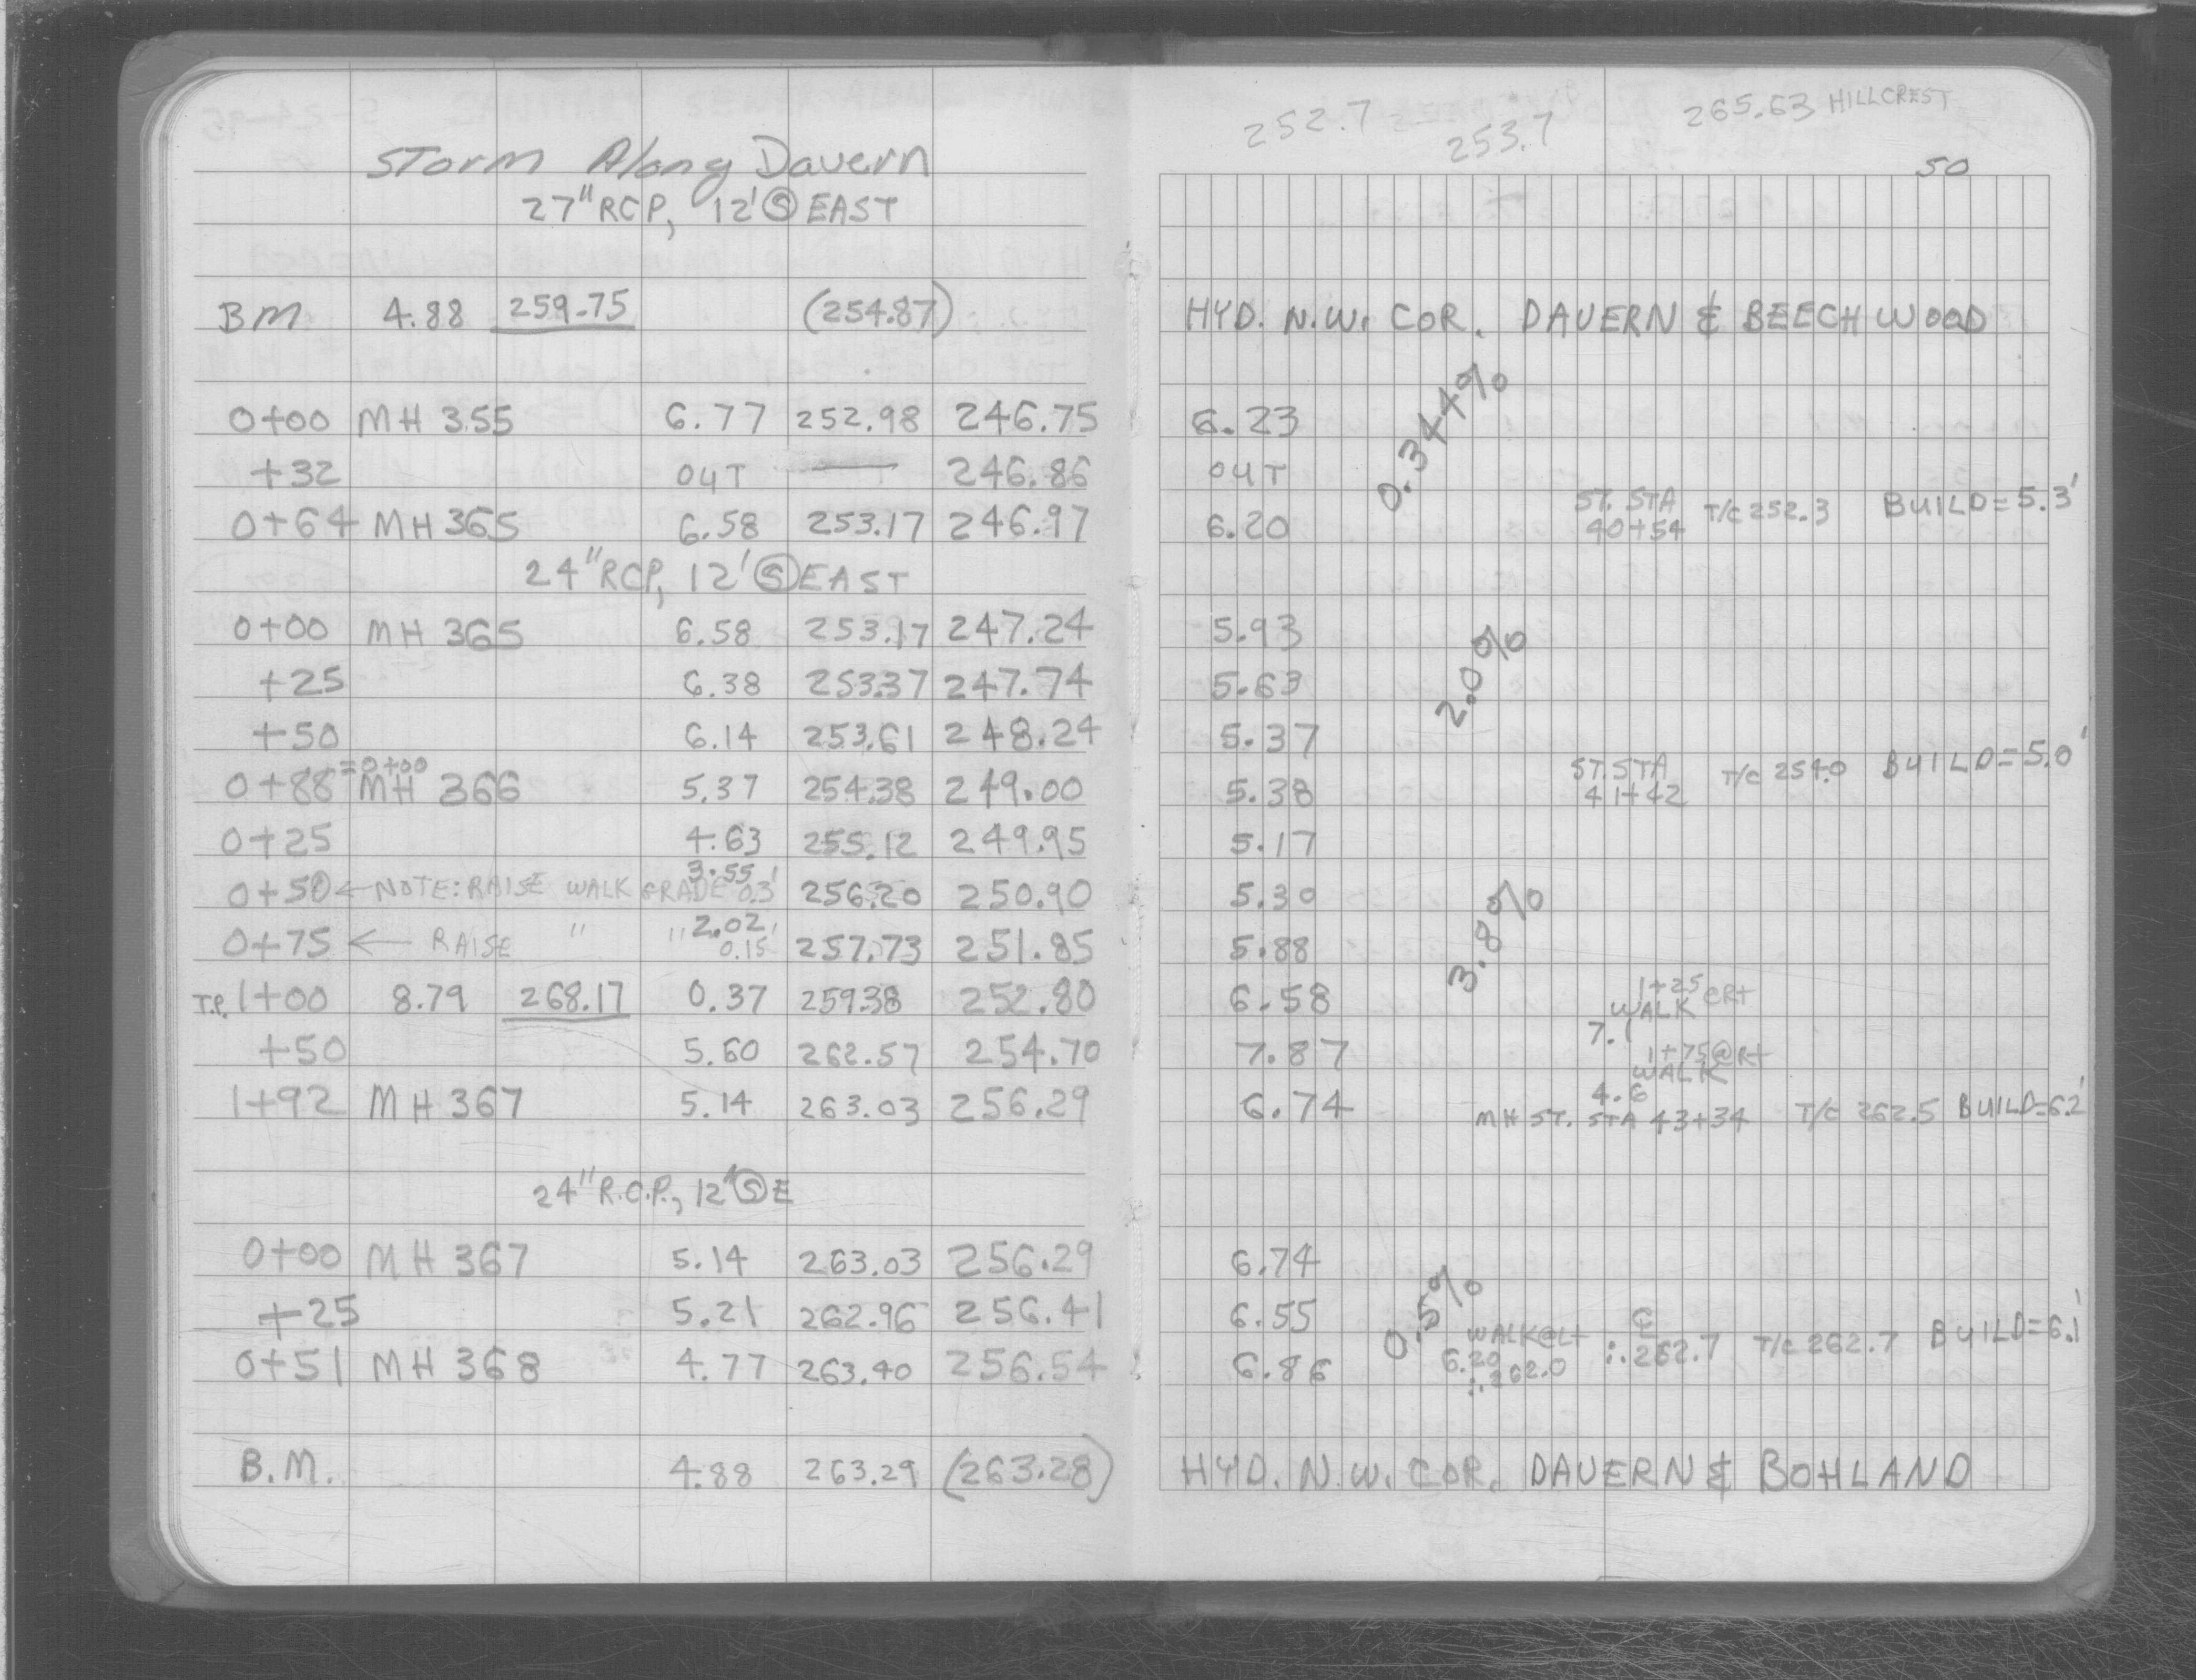 Storm Along Davern
27" RCP, 12' Ⓢ EAST
BM 4.88 259.75 (254.87)
0+00 MH 355 6.77 252.98 246.75
+32 OUT — 246.86
0+64 MH 365 6.58 253.17 246.97
24" RCP, 12' Ⓢ EAST
0+00 MH 365 6.58 253.17 247.24
+25 6.38 253.37 247.74
+50 6.14 253.61 248.24
=0+00
0+88 MH 366 5.37 254.38 249.00
0+25 4.63 255.12 249.95
3.55
0+50 ← NOTE: RAISE WALK GRADE 0.3' 256.20 250.90
2.02
0+75 ← RAISE " " 0.15' 257.73 251.85
T.P. 1+00 8.79 268.17 0.37 259.38 252.80
+50 5.60 262.57 254.70
1+92 MH 367 5.14 263.03 256.29
24" R.C.P., 12' Ⓢ E
0+00 MH 367 5.14 263.03 256.29
+25 5.21 262.96 256.41
0+51 MH 368 4.77 263.40 256.54
B.M. 4.88 263.29 (263.28)
252.7 253.7 265.63 HILLCREST
50
HYD. N.W. COR. DAVERN & BEECHWOOD
0.344%
6.23
OUT
6.20 ST. STA T/C 252.3 BUILD=5.3'
40+54
5.93
2.0%
5.63
5.37
ST. STA T/C 254.0 BUILD=5.0'
5.38 41+42
5.17
3.8%
5.30
5.88
1+25
6.58 WALK @Rt
7.1
7.87 1+75@Rt
WALK
4.6
6.74 MH ST. STA 43+34 T/C 262.5 BUILD=6.2'
6.74
0.5%
6.55 ℄
WALK@Lt ∴ 262.7 T/C 262.7 BUILD=6.1'
6.86 6.20
∴ 262.0
HYD. N.W. COR. DAVERN & BOHLAND